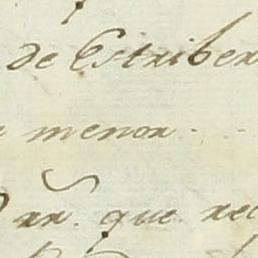 de Estriber
menor.
que rec